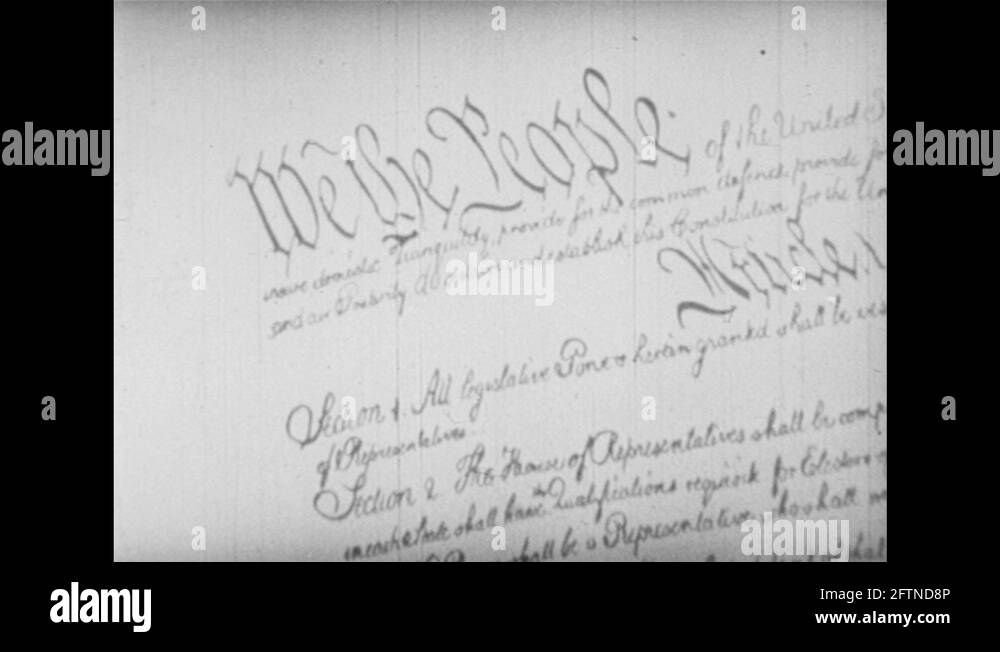 We the People of the United S
tranquility, provide for the common defence, provide for
and our Posterity do ordain and establish this Constitution for the Un
Article I
Section 1. All legislative Powers herein granted shall be ves
of Representatives
Section 2 The House of Representatives shall be comp
in each State shall have the Qualifications requisite for Electors
shall be a Representative who shall
a
alamy
Image ID: 2FTND8P
www.alamy.com